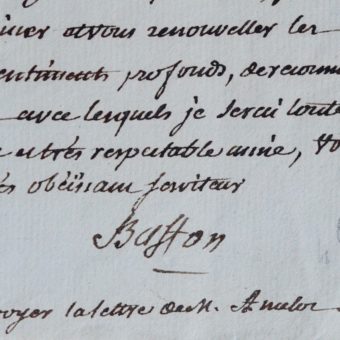 a vous renouveller les
sentiments profonds, de reconn
avec lesquels je serai toute
et très respectable amie, vo
obéissant serviteur
Buffon
envoyer la lettre de M. Amelot